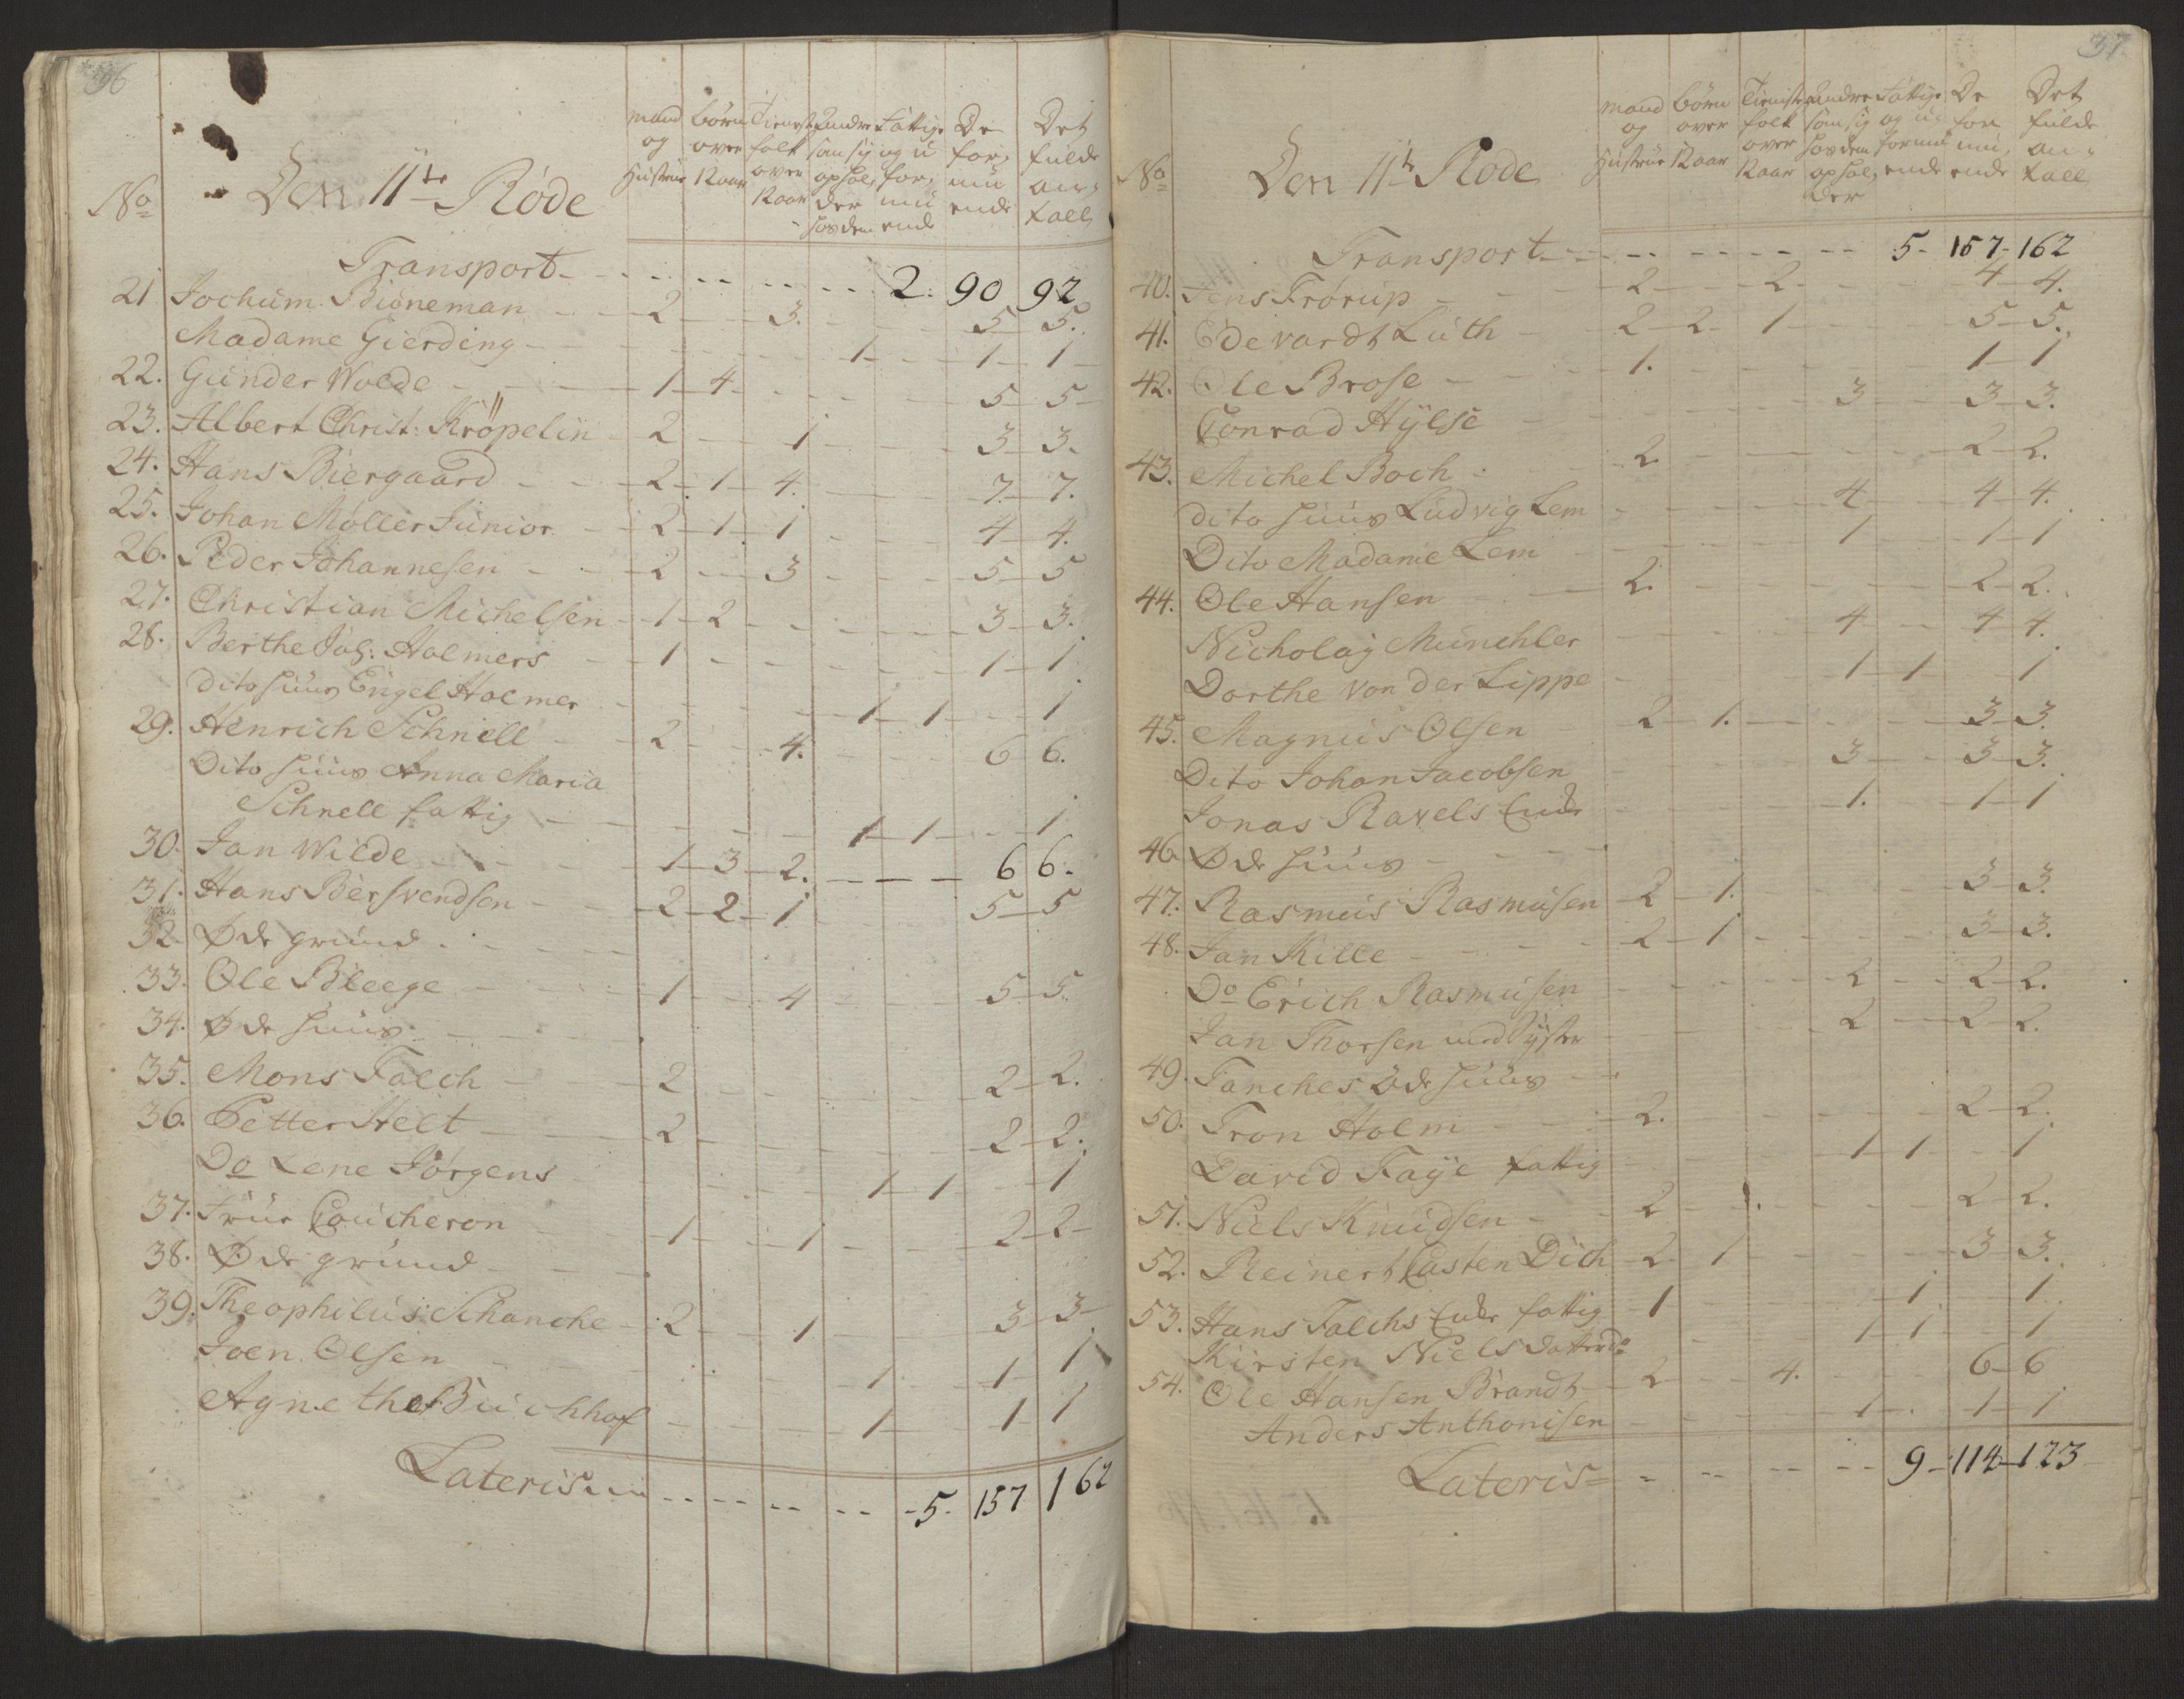 36
No
Den 11te Rode
mand og Hustrue
børn over 12 aar
Tieneste folk over 12 aar
andre som sig ophol, der hos dem
Fattige og u for, mu ende
De for, mu ende
Det fulde an, tall
Transport - - - - 2. 90 92
21 Jochum Bioneman - 2 - 3. - - 5 - 5.
Madame Gierding - - - 1 - 1 - 1
22. Gunder Wolde - 1 - 4 - - - 5 - 5
23. Albert Christ: Kröpelin 2 - 1 - - 3 - 3.
24. Hans Biergaard - 2 - 1 - 4. - - 7 - 7.
25. Johan Møller Junior 2 - 1 - 1 - - 4 - 4.
26. Peder Johannesen - 2 - 3 - - 5 - 5
27. Christian Michelsen - 1 - 2 - - - 3 - 3.
28. Berthe Joh: Holmers - 1 - - - 1 - 1
Dito huus Engel Holmer - - - 1 - 1 - 1
29. Henrich Schnell - 2 - 4. - - 6 6.
Dito huus Anna Maria
Schnell fattig - - - 1 - 1 - - 1
30. Jan Wilde - 1 - 3 - 2. - - 6 6.
31. Hans Bersvendsen - 2 - 2 - 1 - 5 - 5
32. Øde grund
33. Ole Bleege - 1 - 4 - - 5 - 5.
34. Øde huus
35. Mons Falch - 2 - - - 2 - 2.
36. Petter Helt - 2 - - - 2 - 2.
Do Lene Jørgens - - - 1 - 1 - 1
37. Frue Coucheron - 1 - 1 - - 2 - 2
38. Øde grund
39. Theophilus Schanche - 2 - 1 - - 3 - 3
Joen Olsen - - - 1 - 1 1
Agnethe Buchhof - - - 1 - 1 1
Lateris - - - - - 5. 157 162
37.
No
Den 11te Rode
mand og Hustrue
børn over 12 aar
Tieneste folk over 12 aar
andre som sig hos dem ophol, der
Fattige og u formu ende
De for mu, ende
Det fulde an, tall
Transport - - - - - 5 - 157 - 162
40. Jens Frørup - 2 - 2. - - 4 - 4.
41. Edevardt Luth - 2 - 2 - 1 - - 5 - 5.
42. Ole Brose - 1. - - - 1 - 1
Conrad Hylse - - - 3 - 3 - 3.
43. Michel Boch - 2 - - - 2 - 2.
dito huus Ludvig Lem - - - 4 - 4 - 4.
Dito Madame Lem - - - 1 - 1 - 1
44. Ole Hansen - 2. - - - 2 - 2.
Nicholaj Munchler - - - 4 - 4 4.
Dorthe von der Lippe - - - 1 - 1 1
45. Magnus Olsen - 2 - 1. - - 3 - 3.
Dito Johan Jacobsen - - - 3 - 3 - 3.
Jonas Ravels Enke - - - 1. - 1 - 1
46. Øde huus
47. Rasmus Rasmusen - 2 - 1. - - 3 - 3.
48. Jan Kille - 2 - 1 - - - 3 - 3.
Do Erich Rasmusen - - - 2 - 2 - 2.
Jan Thorsen med Syster - - 2 - 2 - 2.
49. Fanches Øde huus
50. Tron Holm - 2. - - - 2 - 2.
David Faye fattig - - - 1 1 - 1
51. Niels Knudsen - 2 - - - 2 - 2.
52. Reinert Casten Dich - 2 - 1 - - - 3 - 3.
53. Hans Falchs Enke fattig - 1 - - - 1 - 1
Kirsten Niels datter do - - 1 - 1 - 1
54. Ole Hansen Brandt - 2 - 4. - - 6 - 6
Anders Anthonisen - - - 1 - 1 - 1
Lateris - - - - - 9 - 114 - 123